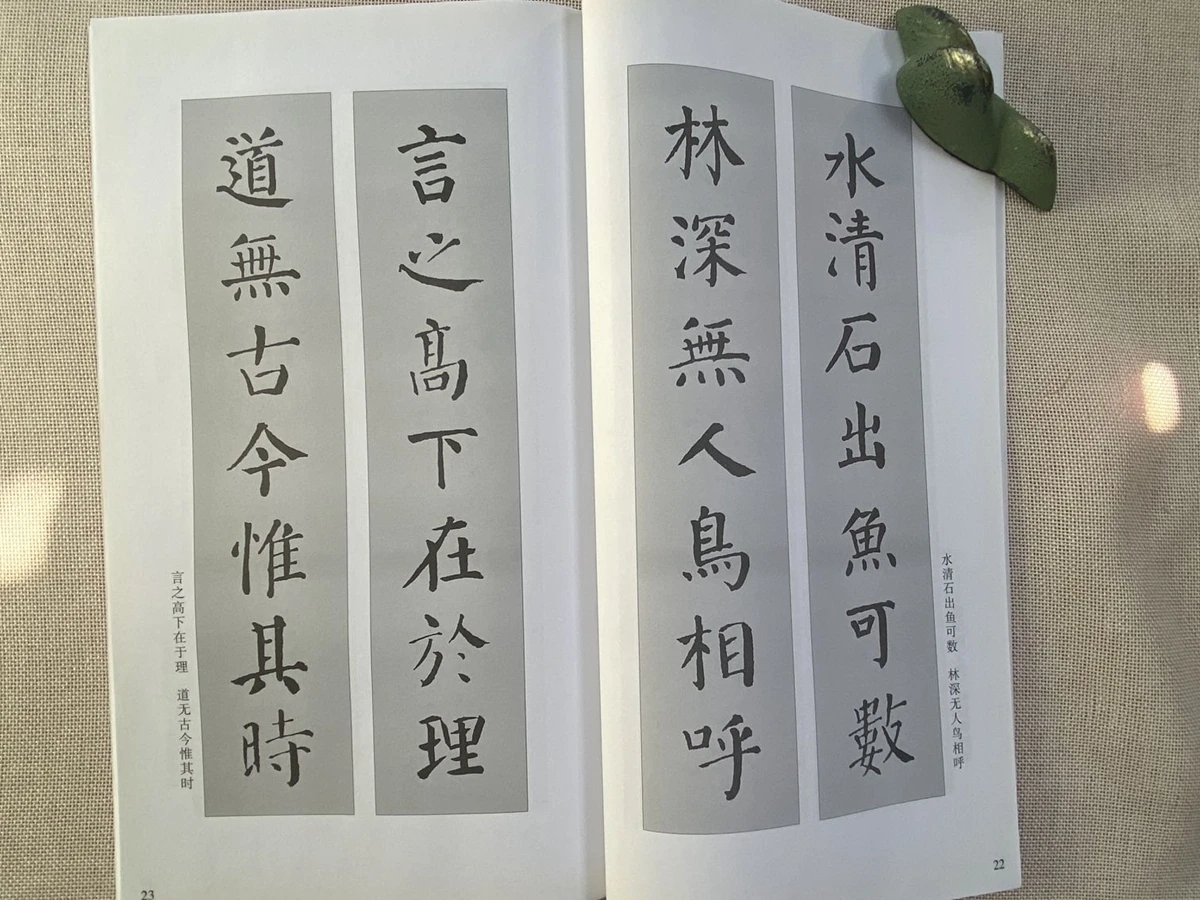 水清石出魚可數
林深無人鳥相呼
水清石出鱼可数　林深无人鸟相呼
22
言之高下在於理
道無古今惟其時
言之高下在于理　道无古今惟其时
23